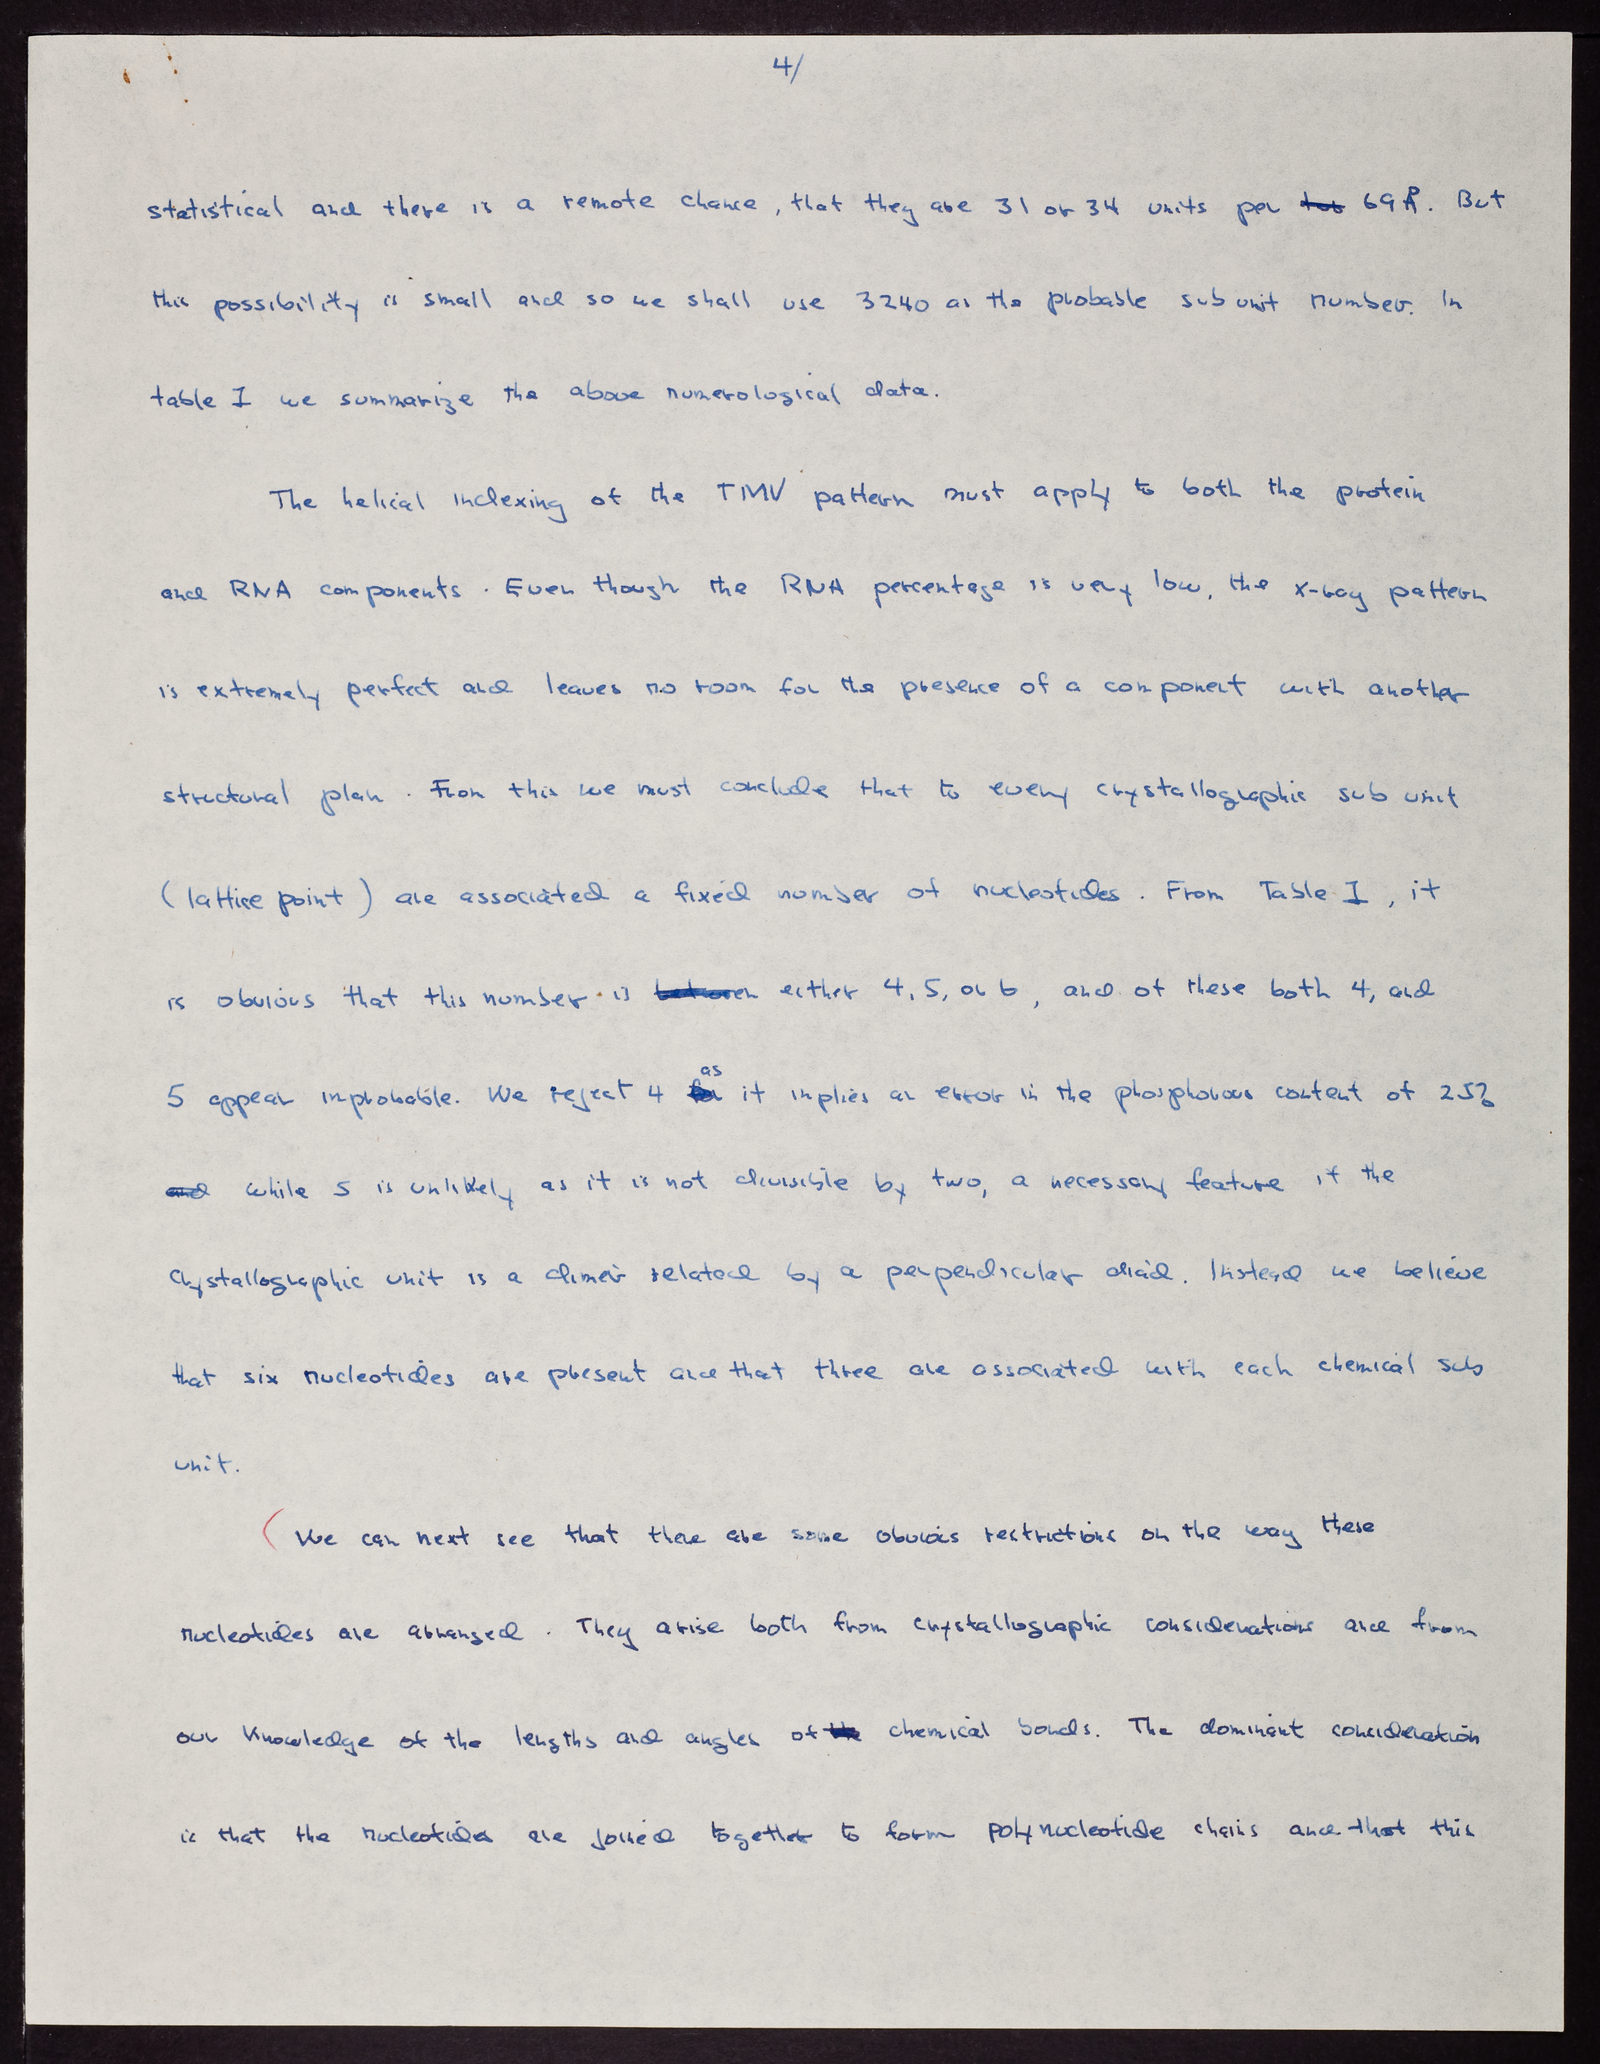 4/
statistical and there is a remote chance, that they are 31 or 34 units per 69 Å. But
this possibility is small and so we shall use 3240 as the probable sub unit number. In
table I we summarize the above numerological data.
The helical indexing of the TMV pattern must apply to both the protein
and RNA components. Even though the RNA percentage is very low, the x-ray pattern
is extremely perfect and leaves no room for the presence of a component with another
structural plan. From this we must conclude that to every crystallographic sub unit
(lattice point) are associated a fixed number of nucleotides. From Table I, it
is obvious that this number is between either 4, 5, or 6, and of these both 4, and
5 appear improbable. We reject 4 as it implies an error in the phosphorous content of 25%
and while 5 is unlikely as it is not divisible by two, a necessary feature if the
crystallographic unit is a dimer related by a perpendicular diad. Instead we believe
that six nucleotides are present and that three are associated with each chemical sub
unit.
(We can next see that there are some obvious restrictions on the way these
nucleotides are arranged. They arise both from crystallographic considerations and from
our knowledge of the lengths and angles of the chemical bonds. The dominant consideration
is that the nucleotides are joined together to form polynucleotide chains and that this